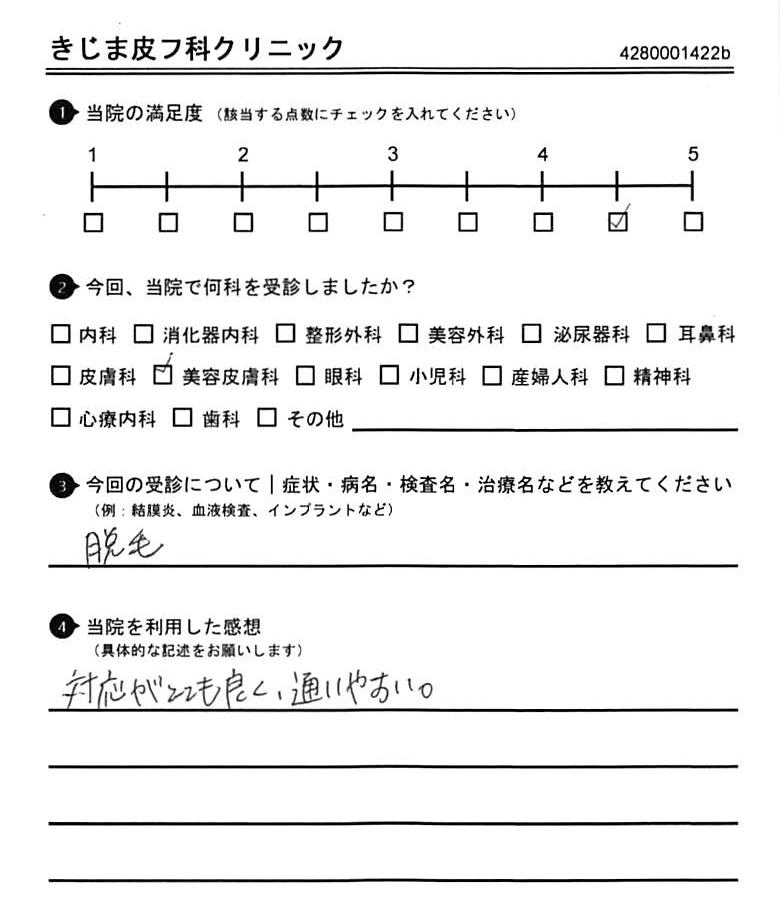 きじま皮フ科クリニック 4280001422b
1 当院の満足度 （該当する点数にチェックを入れてください）
1 2 3 4 5
□ □ □ □ □ □ □ ☑ □
2 今回、当院で何科を受診しましたか？
□ 内科 □ 消化器内科 □ 整形外科 □ 美容外科 □ 泌尿器科 □ 耳鼻科
□ 皮膚科 ☑ 美容皮膚科 □ 眼科 □ 小児科 □ 産婦人科 □ 精神科
□ 心療内科 □ 歯科 □ その他
3 今回の受診について｜症状・病名・検査名・治療名などを教えてください
（例：結膜炎、血液検査、インプラントなど）
脱毛
4 当院を利用した感想
（具体的な記述をお願いします）
対応がとても良く、通いやすい。